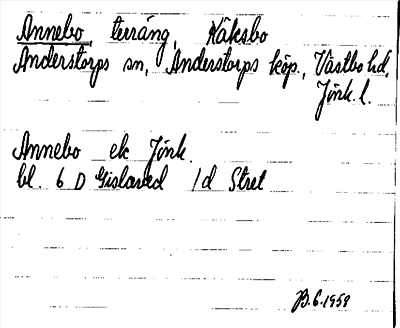 Annebo, terräng, Käksbo
Anderstorps sn, Anderstorps köp., Västbo hd,
Jönk. l.
Annebo ek Jönk.
bl. 6 D Gislaved 1d Stret
B.E. 1958